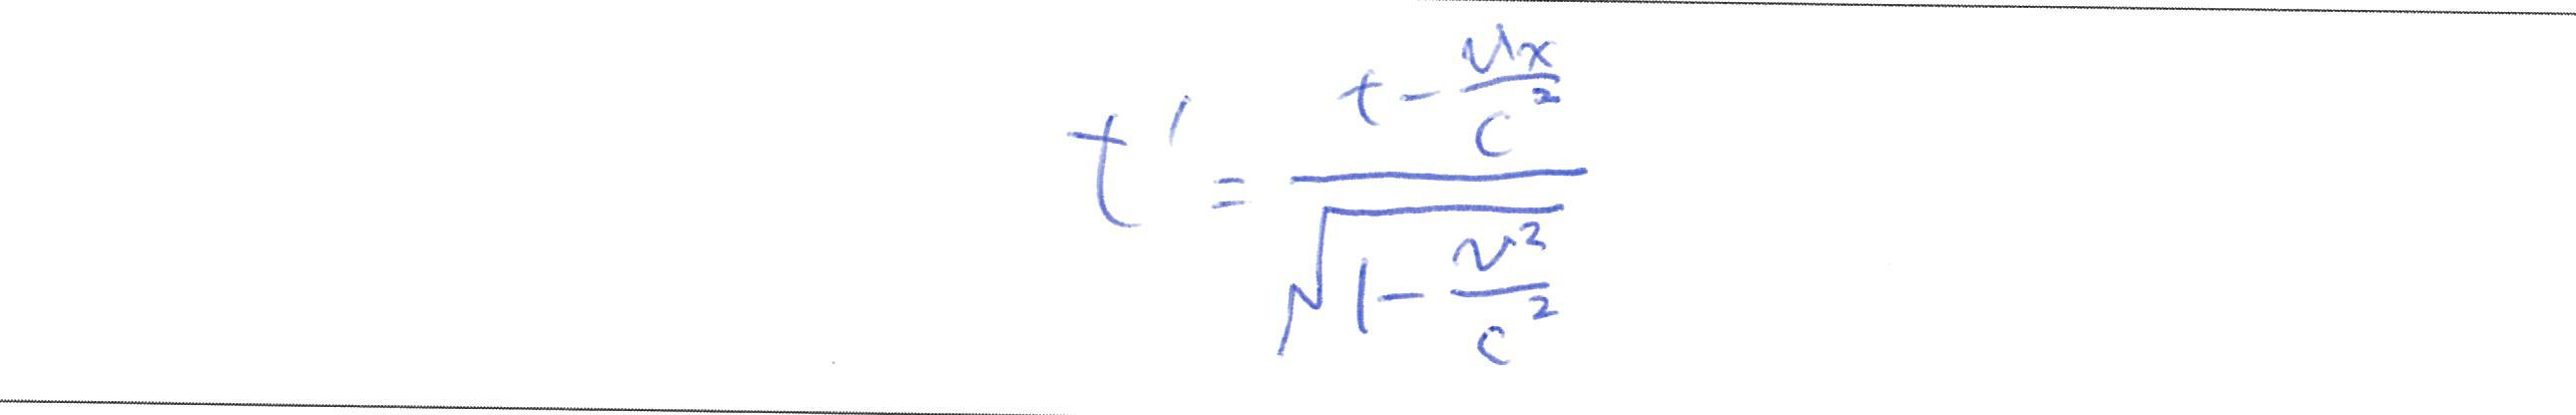 t' = \frac{t - \frac{vx}{c^2}}{\sqrt{1 - \frac{v^2}{c^2}}}